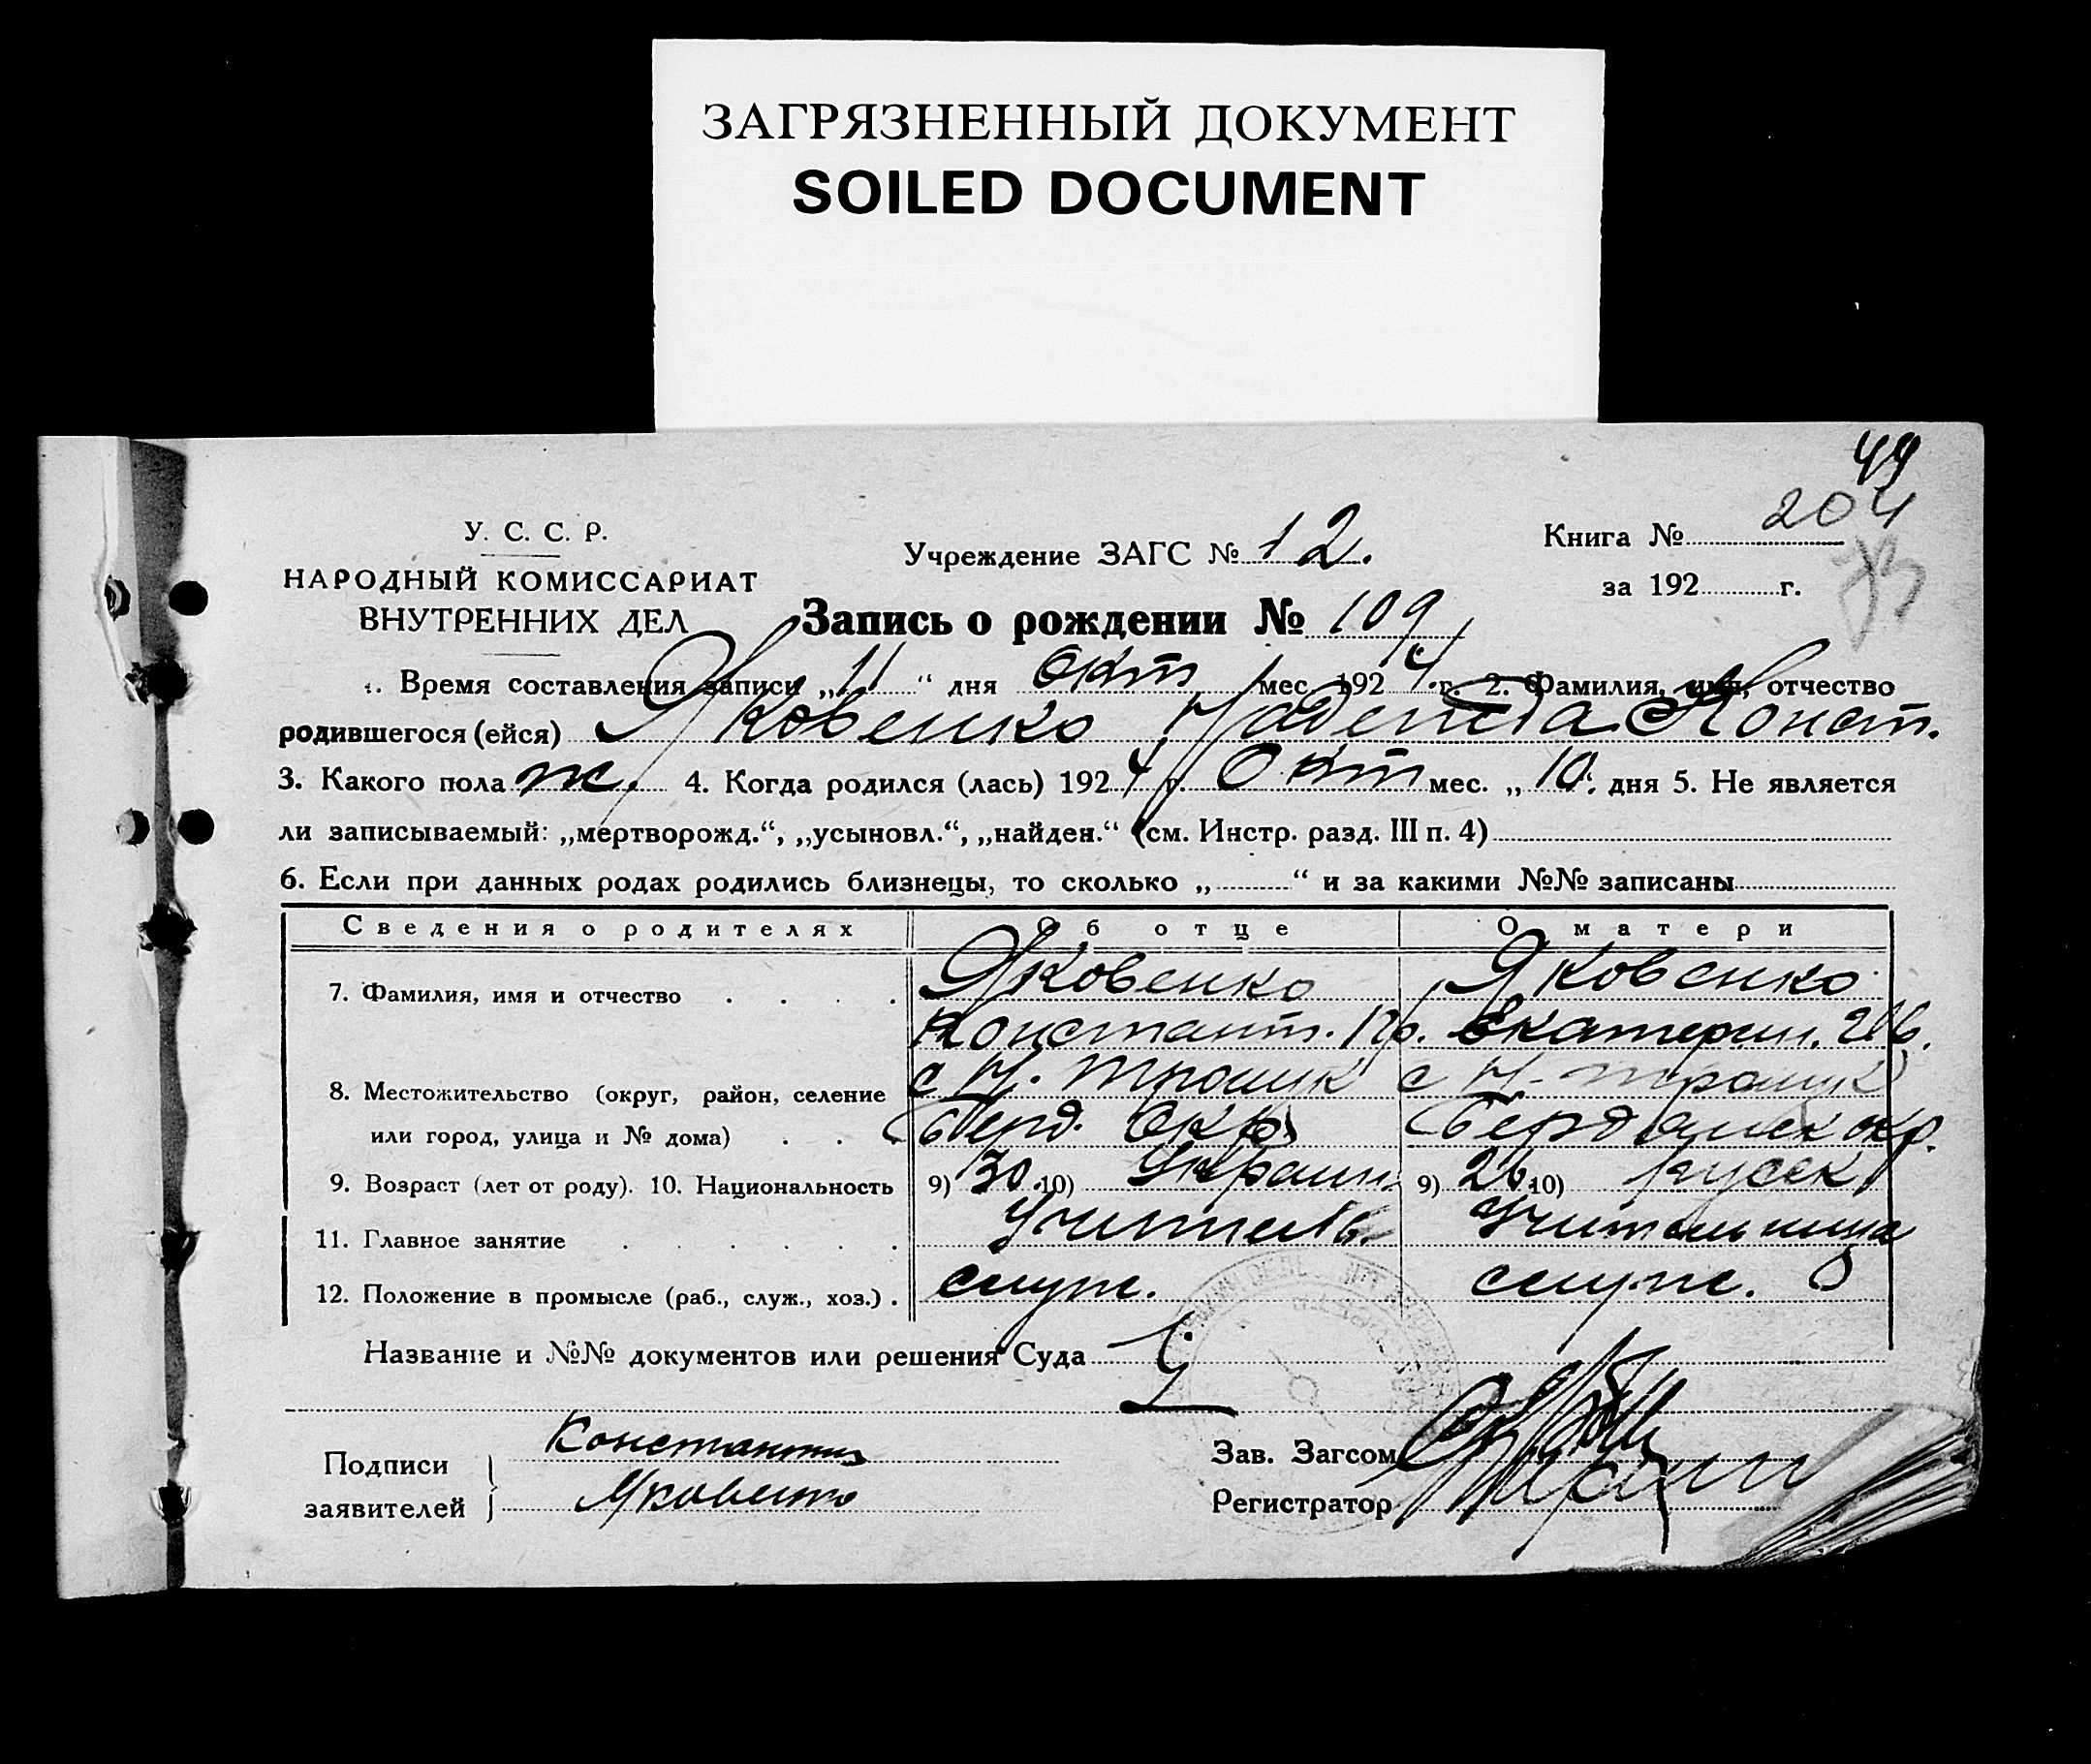 ЗАГРЯЗНЕННЫЙ ДОКУМЕНТ
SOILED DOCUMENT
49
204
У. С. С. Р.
НАРОДНЫЙ КОМИССАРИАТ
ВНУТРЕННИХ ДЕЛ
Учреждение ЗАГС № 12.
Книга №
за 192 г.
Запись о рождении № 109
1. Время составления записи „11“ дня Окт мес. 1924 г. 2. Фамилия, имя, отчество
родившегося (ейся) Яковенко Надежда Конст.
3. Какого пола ж. 4. Когда родился (лась) 1924 г. Окт мес. „10“ дня 5. Не является
ли записываемый: „мертворожд.“, „усыновл.“, „найден.“ (см. Инстр. разд. III п. 4)
6. Если при данных родах родились близнецы, то сколько „ “ и за какими №№ записаны
Сведения о родителях Об отце О матери
7. Фамилия, имя и отчество Яковенко Яковенко
Константт. Пр. Екатерин.
8. Местожительство (округ, район, селение с Н. с Н.
или город, улица и № дома) Берд. Окр Бердянск окр.
9. Возраст (лет от роду). 10. Национальность 9) 30 10) Украин. 9) 26 10) Русск
11. Главное занятие Учитель. Учительница
12. Положение в промысле (раб., служ., хоз.) служ. служ.
Название и №№ документов или решения Суда
Подписи заявителей Константин
Яковенко
Зав. Загсом
Регистратор